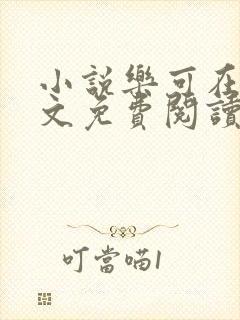 小說樂可在
文免費閱讀
叮當喵1